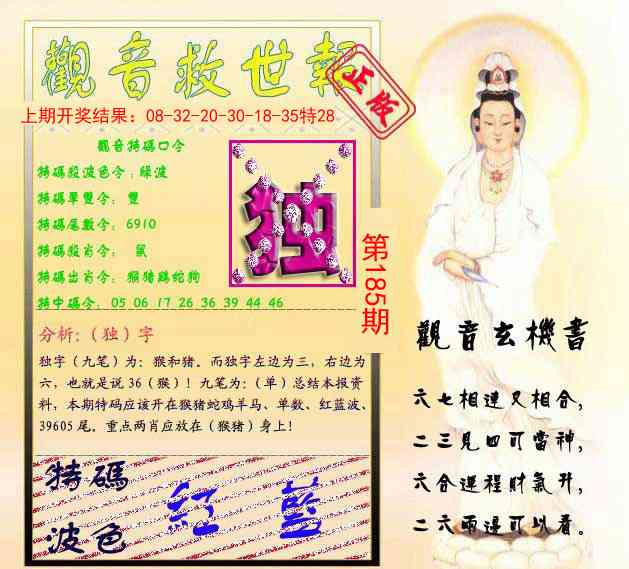 觀音救世報
正版
上期开奖结果：08-32-20-30-18-35特28
觀音特碼口令
特碼殺波色令：綠波
特碼單雙令： 雙
特碼尾數令： 6910
特碼殺肖令： 鼠
特碼出肖令： 猴猪鷄蛇狗
特中碼令： 05 06 17 26 36 39 44 46
独
第185期
分析:（独）字
独字（九笔）为：猴和猪。而独字左边为三，右边为
六，也就是说 36（猴）！九笔为：（单）总结本报资
料，本期特码应该开在猴猪蛇鸡羊马、单数、红蓝波、
39605 尾。重点两肖应放在（猴猪）身上！
特碼
波色
紅 藍
觀音玄機書
六七相連又相合，
二三見四可當神，
六合運程財氣升，
二六兩邊可以看。